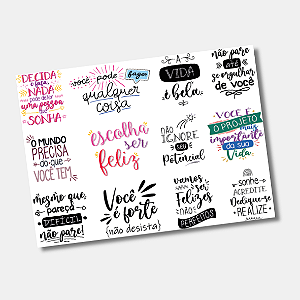 DECIDA
NADA
pode deter
uma pessoa
SONHA
você pode
fazer
qualquer
coisa
A
VIDA
é bela.
não pare
até
se orgulhar
de você
O MUNDO
PRECISA
do que
VOCÊ TEM
escolha
ser
feliz
NÃO
IGNORE
seu
Potencial
VOCÊ É
O PROJETO
mais
importante
da sua
Vida
mesmo que
pareça
DIFÍCIL
não pare!
Você
é forte
(não desista)
vamos
ser
Felizes
NÃO
PERFEITOS
sonhe
ACREDITE
Dedique-se
REALIZE